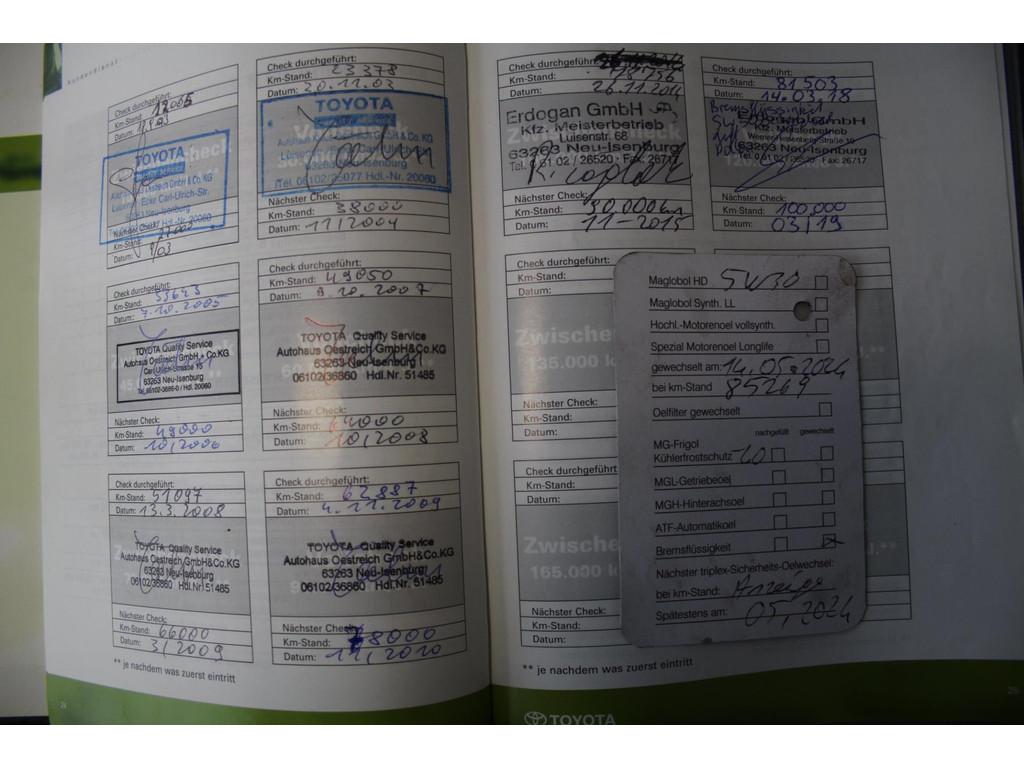 kundendienst
Check durchgeführt:
Km-Stand: 12065
Datum:
TOYOTA
Ecke Carl-Ulrich-Str.
63263 Neu-Isenburg
Hdl.-Nr. 20060
Nächster Check:
Km-Stand: 27000
Datum: 9/03
Check durchgeführt:
Km-Stand: 23378
Datum: 20.11.03
TOYOTA
Tel. 06102/36077 Hdl.-Nr. 20060
Nächster Check:
Km-Stand: 38000
Datum: 11/2004
Check durchgeführt:
Km-Stand: 33643
Datum: 7.10.2005
TOYOTA Quality Service
Autohaus Oestreich GmbH + Co.KG
Carl-Ulrich-Strasse 15
63263 Neu-Isenburg
Nächster Check:
Km-Stand: 48000
Datum: 10/2006
Check durchgeführt:
Km-Stand: 49050
Datum: 9.10.2007
TOYOTA Quality Service
Autohaus Oestreich GmbH&Co.KG
63263 Neu-Isenburg
06102/36860 Hdl.Nr. 51485
Nächster Check:
Km-Stand: 64000
Datum: 10/2008
Check durchgeführt:
Km-Stand: 51097
Datum: 13.3.2008
TOYOTA Quality Service
Autohaus Oestreich GmbH&Co.KG
63263 Neu-Isenburg
06102/36860 Hdl.Nr. 51485
Nächster Check:
Km-Stand: 66000
Datum: 3/2009
Check durchgeführt:
Km-Stand: 62887
Datum: 4.11.2009
TOYOTA Quality Service
Autohaus Oestreich GmbH&Co.KG
63263 Neu-Isenburg
06102/36860 Hdl.Nr. 51485
Nächster Check:
Km-Stand: 78000
Datum: 11/2010
** je nachdem was zuerst eintritt
Check durchgeführt:
Km-Stand: 78736
Datum: 26.11.2014
Erdogan GmbH
Kfz. Meisterbetrieb
Luisenstr. 68
63263 Neu-Isenburg
Tel. 0 61 02 / 26520 · Fax: 26717
Nächster Check:
Km-Stand: 90.000km
Datum: 11-2015
Check durchgeführt:
Km-Stand: 81503
Datum: 14.03.18
Bremsflüssigkeit
Erdogan GmbH
Kfz. Meisterbetrieb
Werner-Heisenberg-Straße 10
63263 Neu-Isenburg
Fax: 26717
Nächster Check:
Km-Stand: 100.000
Datum: 03/19
Check durchgeführt:
Km-Stand:
Datum:
Zwische
135.000 k
Nächster Check:
Km-Stand:
Datum:
Check durchgeführt
Km-Stand:
Datum:
Zwische
165.000 k
Nächster Check:
Km-Stand:
Datum:
** je nachdem was zuerst eintritt
Maglobol HD 5W30
Maglobol Synth. LL
Hochl.-Motorenoel vollsynth.
Spezial Motorenoel Longlife
gewechselt am: 14.05.2024
bei km-Stand 85269
Oelfilter gewechselt
nachgefüllt gewechselt
MG-Frigol
Kühlerfrostschutz -40
MGL-Getriebeoel
MGH-Hinterachsoel
ATF-Automatikoel
Bremsflüssigkeit
Nächster triplex-Sicherheits-Oelwechsel:
bei km-Stand: Anzeige
Spätestens am: 05/2024
TOYOTA
25